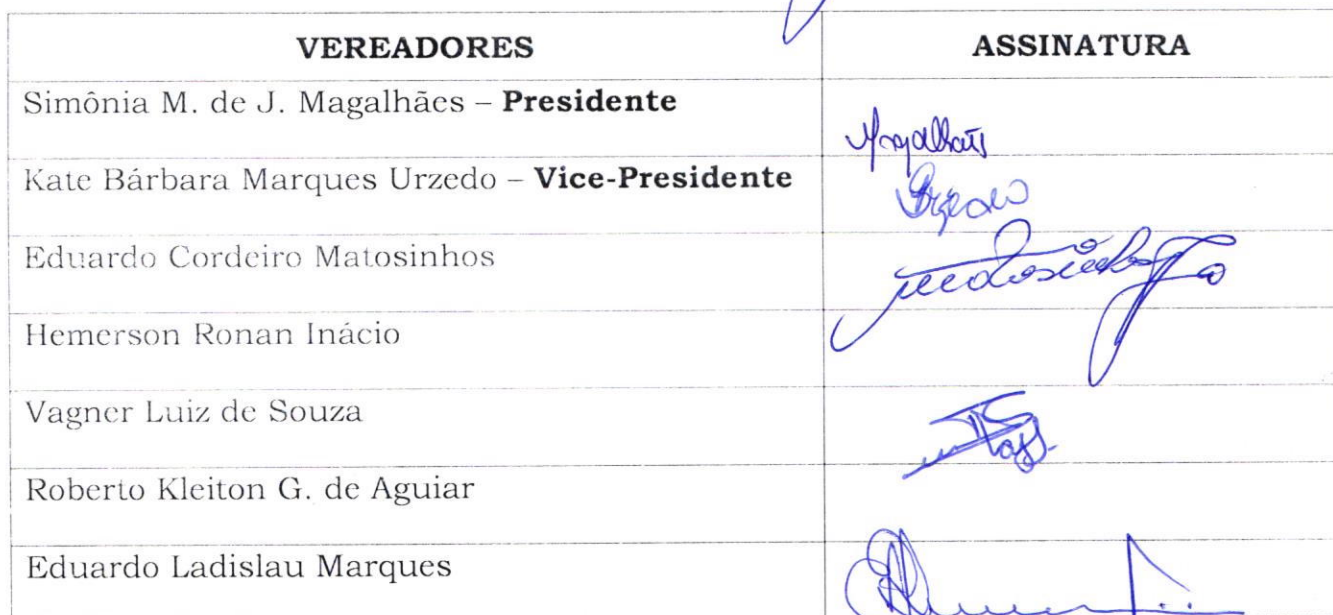 VEREADORES ASSINATURA
Simônia M. de J. Magalhães – Presidente
Magalhães
Kate Bárbara Marques Urzedo – Vice-Presidente
Urzedo
Eduardo Cordeiro Matosinhos
Matosinhos
Hemerson Ronan Inácio
Vagner Luiz de Souza
Roberto Kleiton G. de Aguiar
Eduardo Ladislau Marques